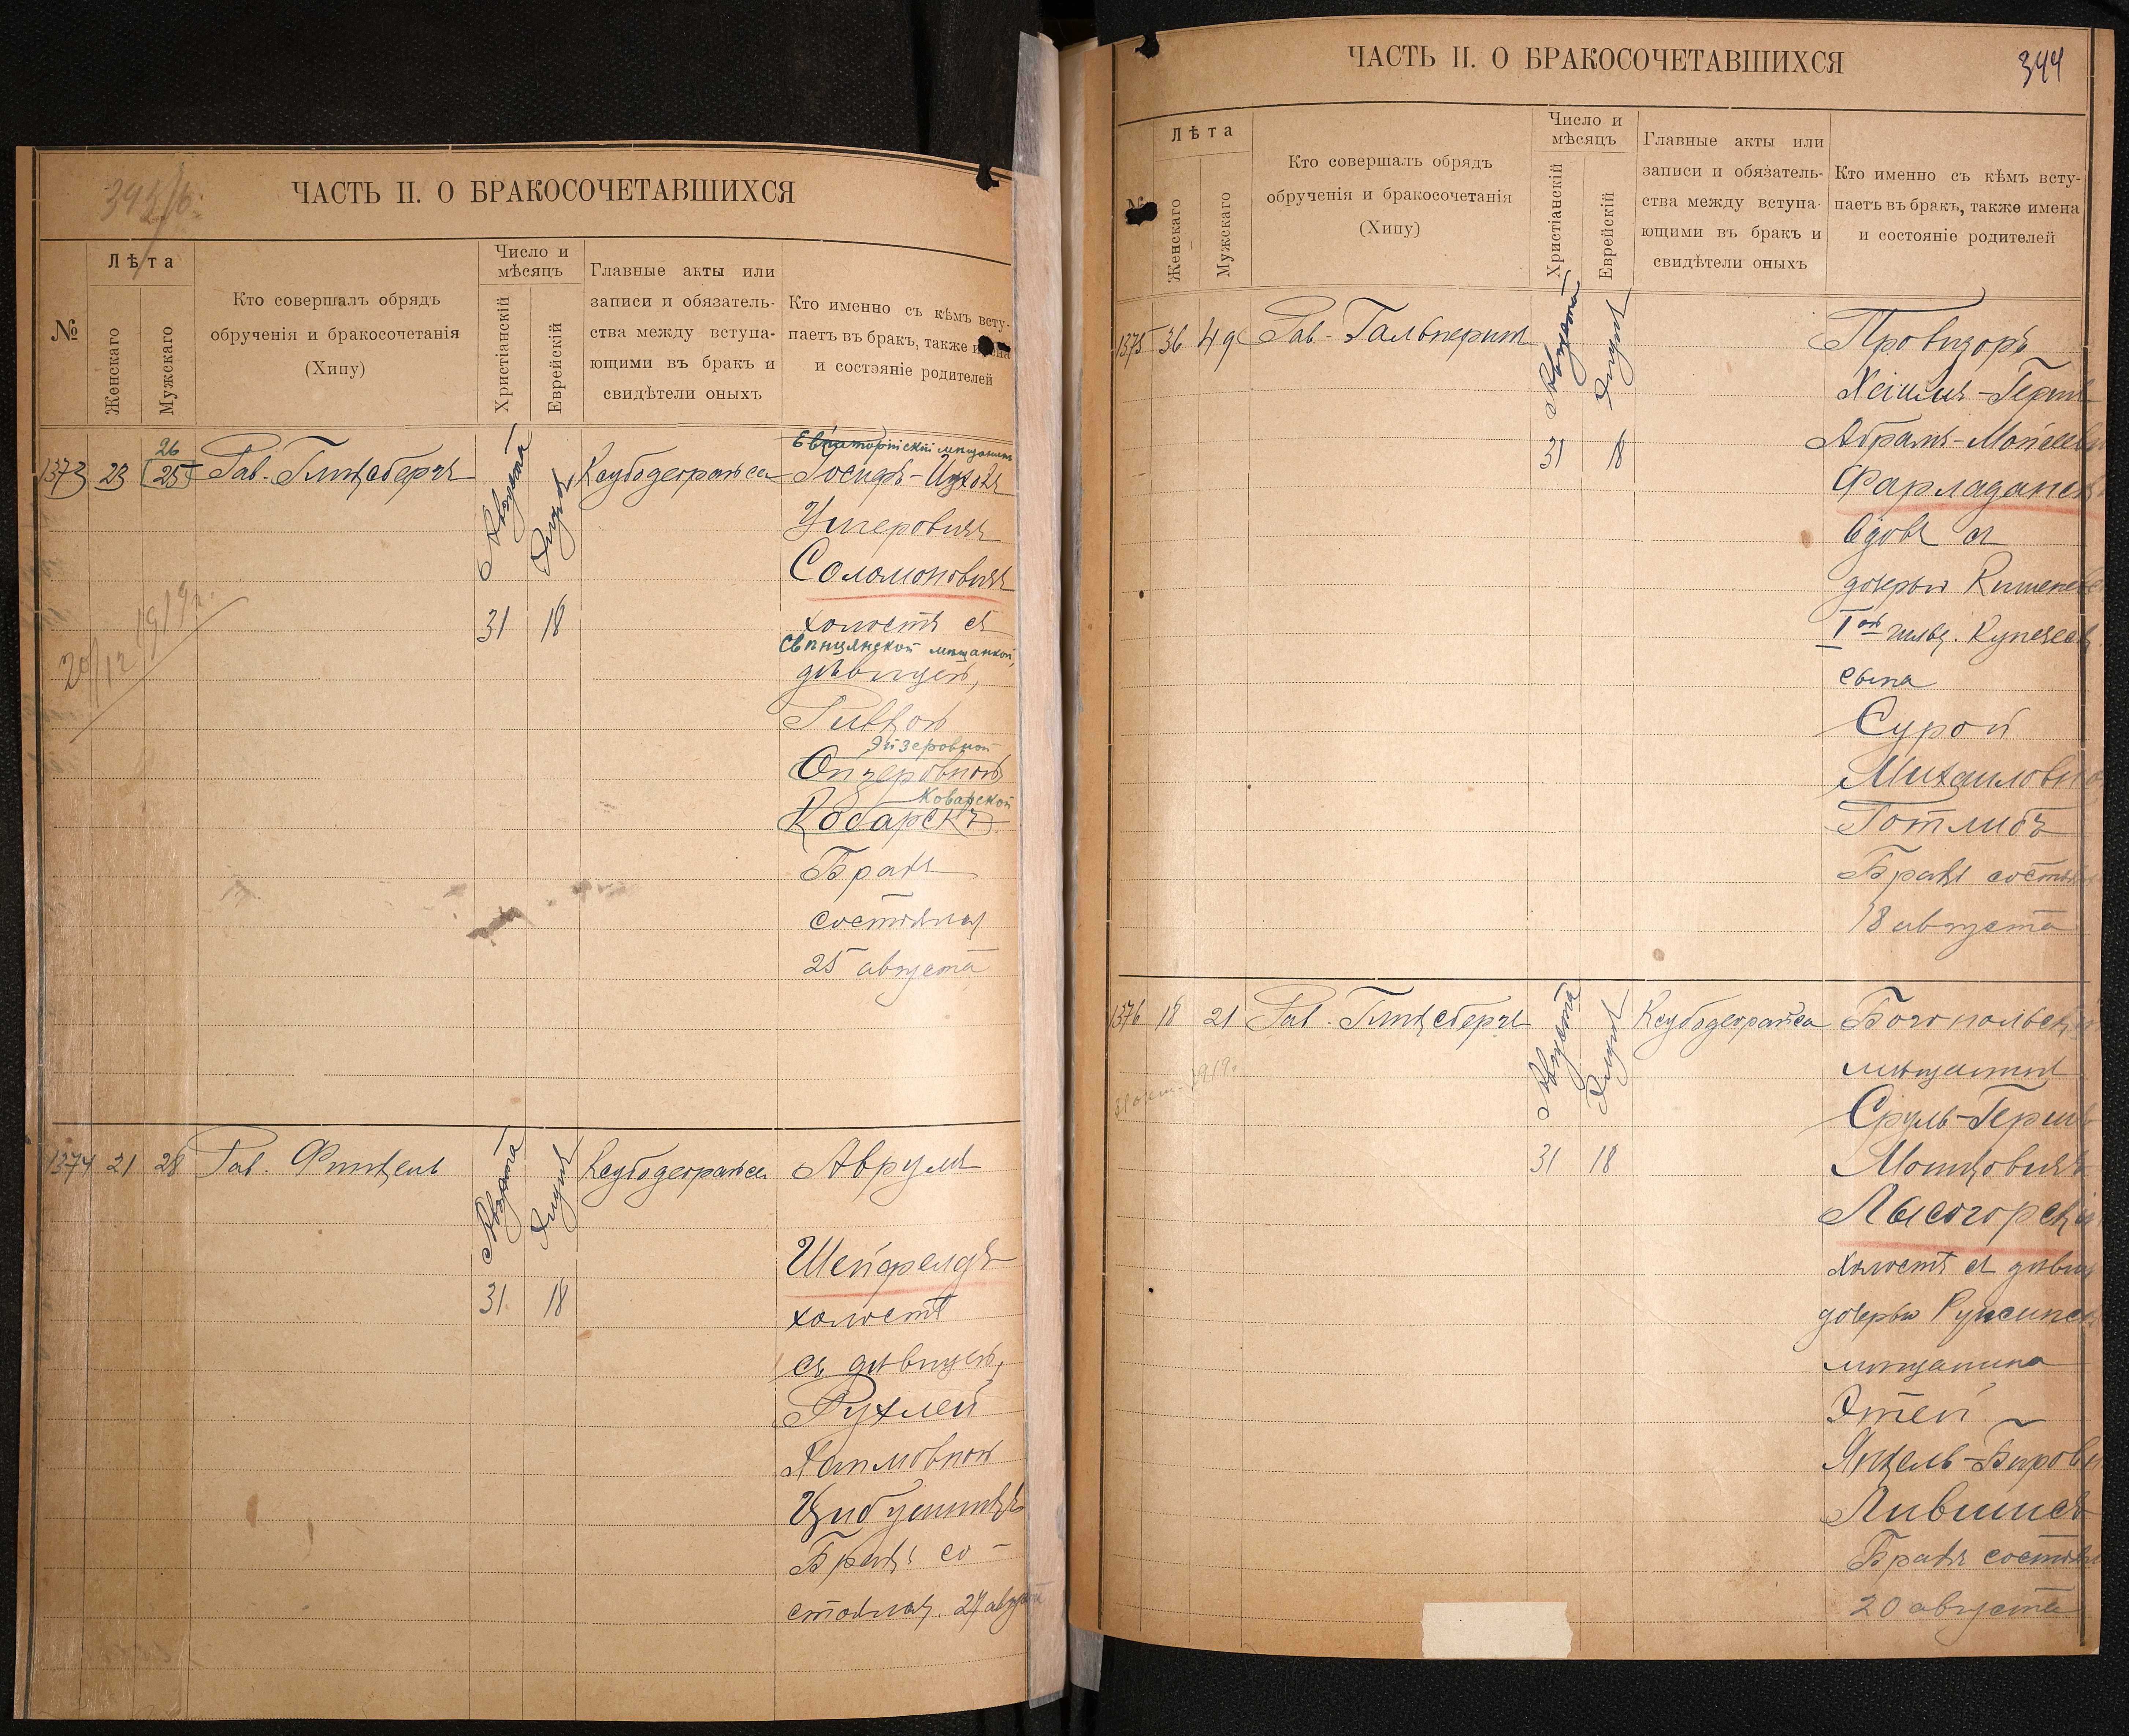 ЧАСТЬ II. О БРАКОСОЧЕТАВШИХСЯ
№
Лѣта
Женскаго
Мужскаго
Кто совершалъ обрядъ
обрученія и бракосочетанія
(Хипу)
Число и
мѣсяцъ
Христіанскій
Еврейскій
Главные акты или
записи и обязатель-
ства между вступа-
ющими въ бракъ и
свидѣтели оныхъ
Кто именно съ кѣмъ всту-
паетъ въ бракъ, также имена
и состояніе родителей
1373 23 26
25 Рав. Гинцбергъ
Августа
31
Элула
18
Евпаторійскій мѣщанинъ
Іосифъ-Ицхокъ
Ушеровичъ
Соломоновичъ
холостъ съ
Свѣнцянской мѣщанкой,
дѣвицей,
Ривкой
Эйзеровной
Ойзеровной
Коварской
Коварскъ
Бракъ
состоялся
25 августа
1374 21 28 Рав. Финкель
Августа
31
Элула
18
Аврумъ
Шейфелдъ
холостъ
съ дѣвицей,
Рухлей
Хаимовной
Бракъ со-
стоялся. 24 августа
ЧАСТЬ II. О БРАКОСОЧЕТАВШИХСЯ
344
Лѣта
Женскаго
Мужскаго
Кто совершалъ обрядъ
обрученія и бракосочетанія
(Хипу)
Число и
мѣсяцъ
Христіанскій
Еврейскій
Главные акты или
записи и обязатель-
ства между вступа-
ющими въ бракъ и
свидѣтели оныхъ
Кто именно съ кѣмъ всту-
паетъ въ бракъ, также имена
и состояніе родителей
1375 36 49 Рав. Гальперинъ
Августа
31
Элула
18
Провизоръ
Хаимъ-Герш
Абрамъ-Моисеев
Фарладанск
вдовъ съ
дочерью Кишенев
Iой гильд. Купеческ
сына
Сурой
Михаиловно
Готлибъ
Бракъ состоял
18 августа
1376 18 21 Рав. Гинцбергъ
Августа
31
Элула
18
Богопольскій
мѣщанинъ
Сруль-Герш
Мошковичъ
Лысогорскій
холостъ съ дѣвиц
дочерью
мѣщанина
Этей
Янкель-Беров
Лившисъ
Бракъ состоял
20 августа